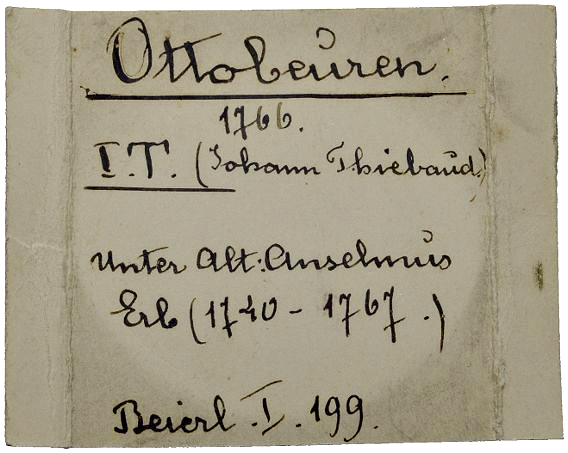 Ottobeuren.
1766.
I.T. (Johann Thiebaud.)
Unter Abt: Anselmus
Erb (1740 - 1767.)
Beierl. I. 199.